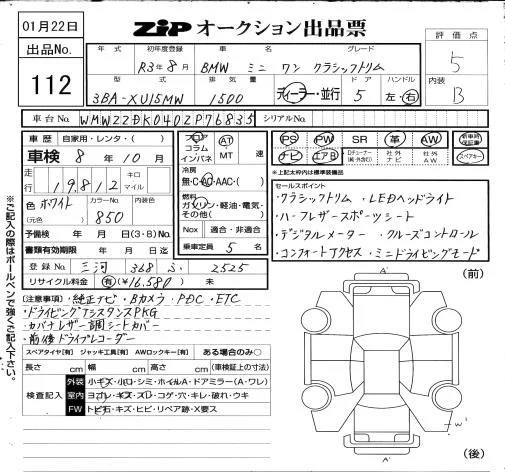 01月22日
ZIP オークション出品票
評価点
出品No.
112
年式 初年度登録 車名 グレード
R3年8月 BMW ミニ ワン クラシックトリム
5
型式 排気量 ドア ハンドル
内装
3BA-XU15MW 1500 ディーラー・並行 5 左・右
B
車台No. WMWZZDK040ZP76835 シリアルNo.
車歴 自家用・レンタ・( )
車検 8年10月
走行 19,812 キロ マイル
色 ホワイト (元色)
カラーNo. 850
内装色
予備検 年 月 日(3・8)No.
書類有効期限 年 月 日
登録No. 三河 368 ふ 2525
リサイクル料金 有(¥16,580) 未
フロア コラム インパネ
AT MT 速
冷房 無・C・AC・AAC・( )
燃料 ガソリン・軽油・電気・その他( )
Nox 適合・非適合
乗車定員 5名
PS PW SR 革 AW 新車時保証書
ナビ エアB 社外ナビ 社外AW スペアキー
★上記マーク内は標準装備品
セールスポイント
・クラシックトリム ・LEDヘッドライト
・ハーフレザースポーツシート
・デジタルメーター ・クルーズコントロール
・コンフォートアクセス ・ミニドライビングモード
[注意事項] ・純正ナビ ・Bカメラ ・PDC ・ETC
・ドライビングアシスタンスPKG
・カバナレザー調シートカバー
・前後ドライブレコーダー
スペアタイヤ[有] ジャッキ工具[有] AWロックキー[有] ある場合のみ○
長さ cm 幅 cm 高さ cm (車検証上の寸法)
検査記入
外装 小キズ・小凹・シミ・ホイルA・ドアミラー(A・ワレ)
室内 ヨゴレ・キズ・スレ・コゲ・穴・キレ・破れ・ウキ
FW トビ石・キズ・ヒビ・リペア跡・X要ス
※ご記入の際はボールペンで強くご記入下さい。
A'
(前)
W'
A'
(後)